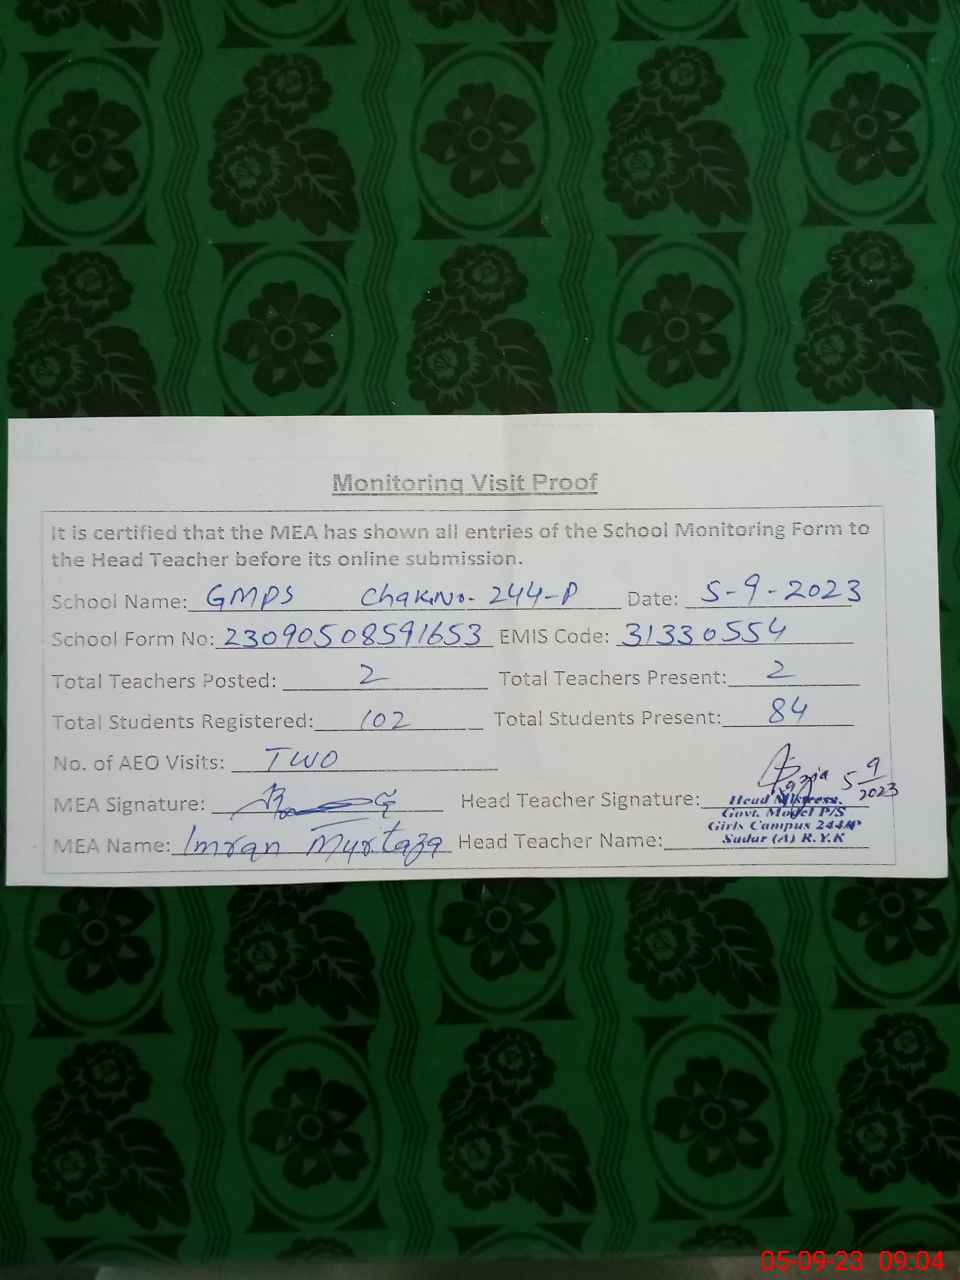 Monitoring Visit Proof
It is certified that the MEA has shown all entries of the School Monitoring Form to
the Head Teacher before its online submission.
School Name: GMPS Chak No. 244-P Date: 5-9-2023
School Form No: 23090508591653 EMIS Code: 31330554
Total Teachers Posted: 2 Total Teachers Present: 2
Total Students Registered: 102 Total Students Present: 84
No. of AEO Visits: TWO
MEA Signature: Head Teacher Signature: 5 9/2023
Head Mistress.
Govt. Model P/S
Girls Campus 244/P
Sadar (A) R.Y.K
MEA Name: Imran Murtaza Head Teacher Name:
05-09-23 09:04